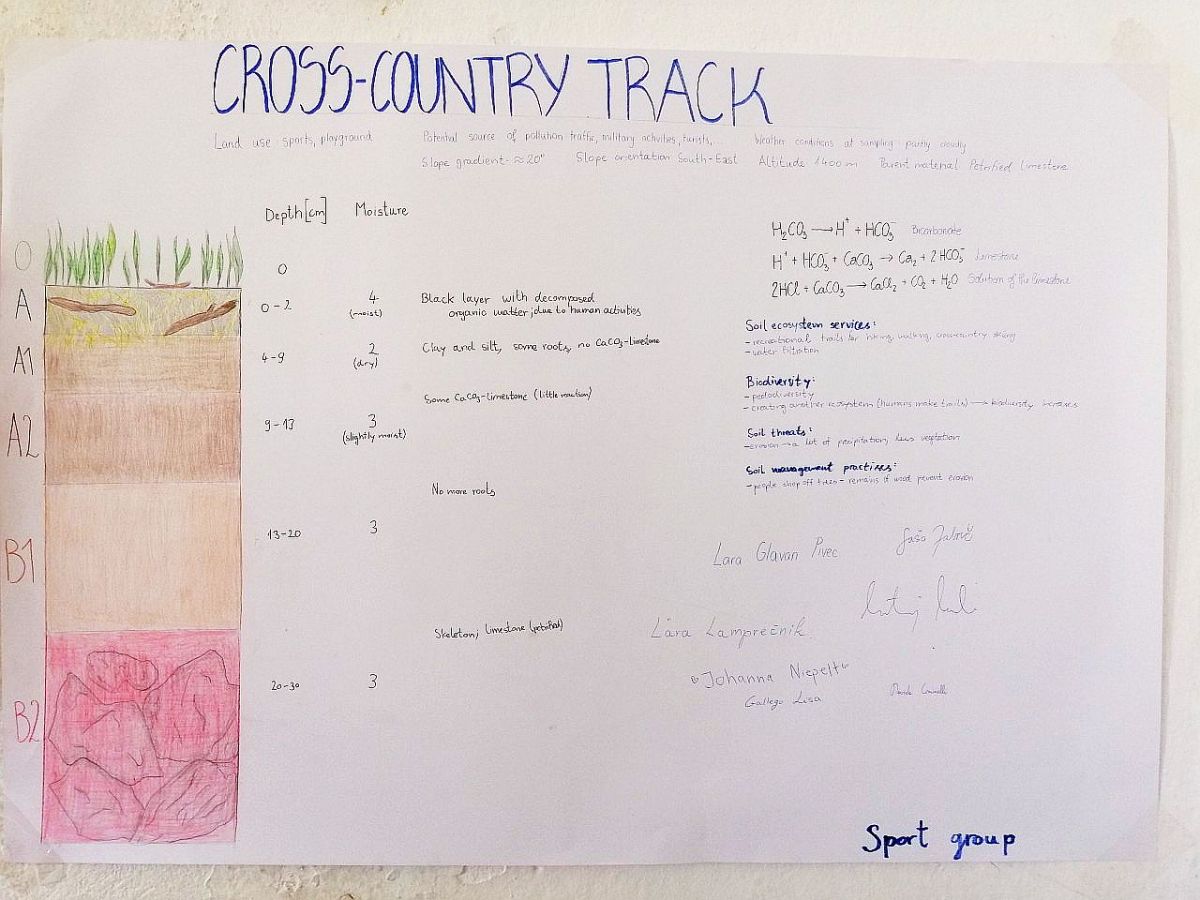 CROSS-COUNTRY TRACK
Land use sports, playground
Potential source of pollution traffic, military activities, turists,...
Weather conditions at sampling: partly cloudly
Slope gradient: ≈20°
Slope orientation South-East
Altitude 1400 m
Parent material Petrified Limestone
Depth [cm] Moisture
O 0
A 0-2 4 (moist) Black layer with decomposed
organic matter; due to human activities
A1 4-9 2 (dry) Clay and silt, some roots, no CaCO3-limestone
Some CaCO3-limestone (little reaction)
A2 9-13 3 (slightly moist)
No more roots
B1 13-20 3
Skeleton; limestone (petrified)
B2 20-30 3
H2CO3 → H+ + HCO3- Bicarbonate
H+ + HCO3- + CaCO3 → Ca2 + 2HCO3- Limestone
2HCl + CaCO3 → CaCl2 + CO2 + H2O Solution of the limestone
Soil ecosystem services:
- recreational trails for hiking, walking, crosscountry skiing
- water filtration
Biodiversity:
- pedodiversity
- creating another ecosystem (humans make trails) → biodiversity increases
Soil threats:
- erosion → a lot of precipitation, less vegetation
Soil management practises:
- people chop off trees - remains of wood prevent erosion
Lara Glavan Pivec
Lara Lamprečnik
Johanna Niepelt
Gallego Lisa
Sport group